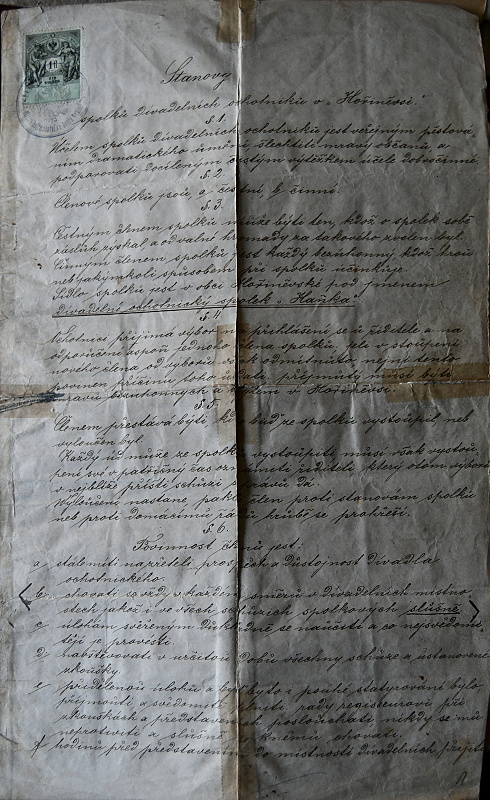 Stanovy
spolku divadelních ochotníků v „Hořiněvsi."
§. 1.
Účelem spolku divadelních ochotníků jest veřejným pěstová
ním dramatického umění šlechtiti mravy občanů, a
podporovati docíleným čistým výtěžkem účele dobročinné.
§. 2.
Členové spolku jsou, a čestní, b činní.
§. 3.
Čestným členem spolku může býti ten, kdož o spolek sobě
zásluh získal a od valné hromady za takového zvolen byl.
Činným členem spolku jest každý bezúhonný kdož hrou
neb jakýmkoli způsobem při spolku účinkuje.
Sídlo spolku jest v obci Hořiněvské pod jmenem
divadelně ochotnický spolek „Hanka".
§. 4.
Ochotníci přijímá výbor na přihlášení se u ředitele a na
odporučení aspoň jednoho člena spolku, jeli v stoupení
nového člena od výboru však odmítnuto, není tento
povinen příčinu toho udati, přijmutý musí býti
mravů bezúhonných a v Hořiněvsi.
§. 5.
Členem přestává býti kdo buď ze spolku vystoupil neb
vyloučen byl.
Každý úd může ze spolku vystoupiti musí však vystou
pení své v patřičný čas oznámiti řediteli který o tom výboru
v nejbližší příští schůzi zprávu dá.
Vyloučení nastane, pakli člen proti stanovám spolku
neb proti domácímu řádu hrubě se prohřeší.
§. 6.
Povinnost členů jest:
a stále míti na zřeteli prospěch a důstojnost divadla
ochotnického.
b chovati se vždy v každém směru v divadelních místno
stech jakož i ve všech schůzích spolkových slušně
c úlohám svěřeným důkladně se naučiti a co nejsvědomi
těji je provésti.
d navštěvovati v určitou dobu všechny schůze a ustanovené
zkoušky.
e přidělenou úlohu a byť by to i pouhé statyrování bylo
přijmouti a svědomitě plniti rady regisseurovi při
zkouškách a představeních poslouchati nikdy se mu
neprotiviti a slušně ku němu chovati.
f hodinu před představením do místností divadelních přijíti